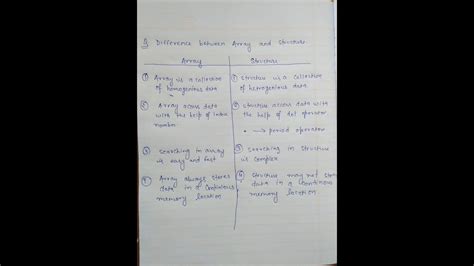 Q Difference between Array and Structure
Array
Structure
① Array is a collection
of homogenious data
② Array access data
with the help of index
number
③ Searching in array
is easy and fast
④ Array always stores
data in a
memory location
① structure is a collection
of data
② structure access data with
the help of dot operator
• → period operator
③ Searching in structure
is complex
④ Structure may not store
data in a
memory location